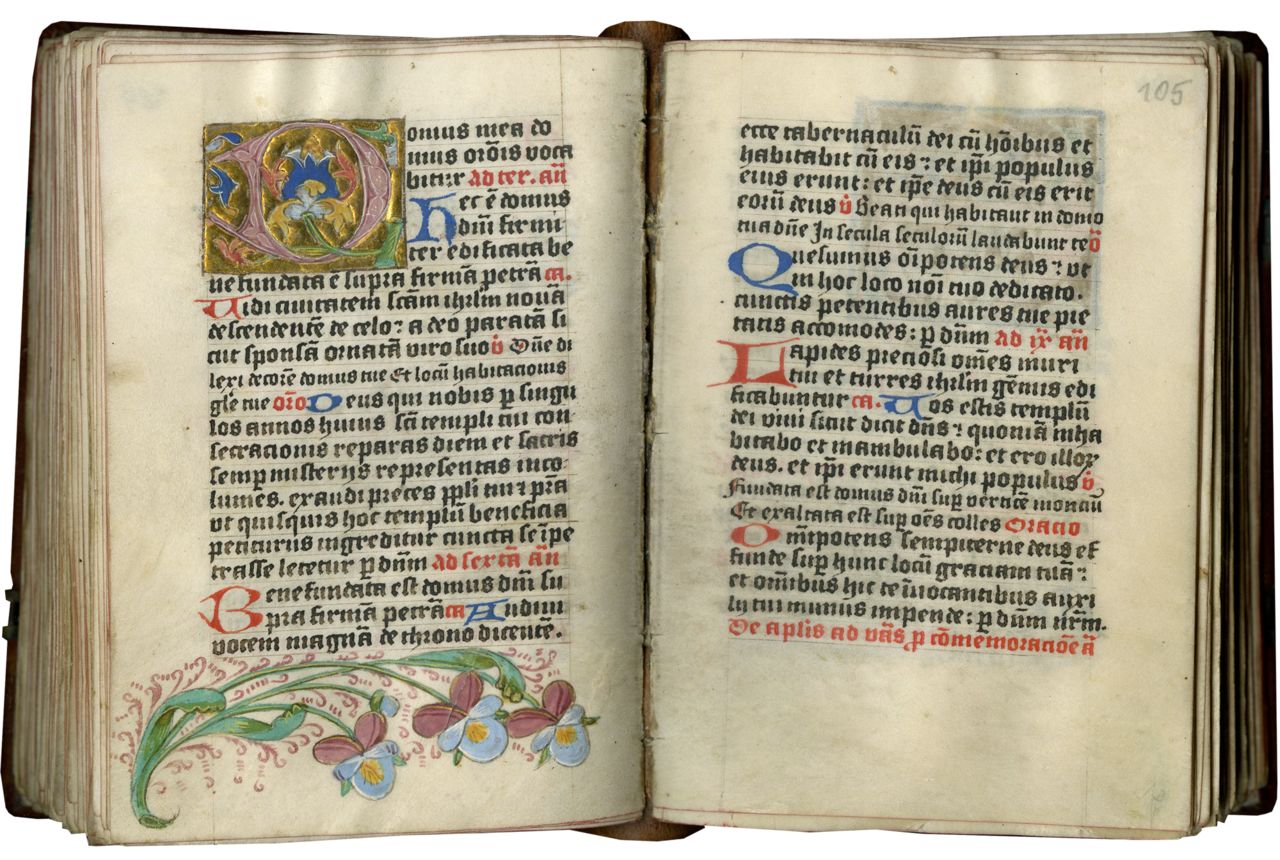 Domus mea do
mus orōis voca
bitur ad ter. añ
Hec ē domus
dñi firmi
ter edificata be
ne fundata ē supra firmā petrā ca.
Uidi ciuitatem scām ihrlm nouā
descendentē de celo: a deo paratā si
cut sponsā ornatā viro suo v̄ Dñe di
lexi decorē domus tue Et locū habitacionis
glē tue orō Deus qui nobis p singu
los annos huius scī templi tui con
secracionis reparas diem et sacris
semp misterijs representas inco
lumes. exaudi preces ppli tui ⁊ prā
vt quisquis hoc templū beneficia
petiturus ingreditur cuncta se īpe
trasse letetur p dñm ad sextā añ
Bene fundata est domus dñi su
pra firmā petrā ca Audiui
vocem magnā de throno dicentē.
105
ecce tabernaculū dei cū hōibus et
habitabit cū eis ⁊ et ipi populus
eius erunt: et ipe deus cū eis erit
eorū deus v̄ Beati qui habitant in domo
tua dñe In secula seculorū laudabunt te ō
Quesumus oīpotens deus ⁊ vt
in hoc loco nōi tuo dedicato.
cunctis petentibus aures tue pie
tatis accomodes: p dñm ad ix añ
Lapides preciosi omēs muri
tui et turres ihrlm gēmis edi
ficabuntur ca. Uos estis templū
dei viui sicut dicit dñs ⁊ quoniā inha
bitabo et inambulabo: et ero illoꝝ
deus. et ipi erunt michi populus v̄
Fundata est domus dñi sup verticē montiū
Et exaltata est sup oēs colles Oracio
Omīpotens sempiterne deus ef
funde sup hunc locū graciam tuā ⁊
et omībus hic te īuocantibus auxi
lij tui munus impende: p dñm nrm.
De aplis ad vās p cōmemoraciōe ā